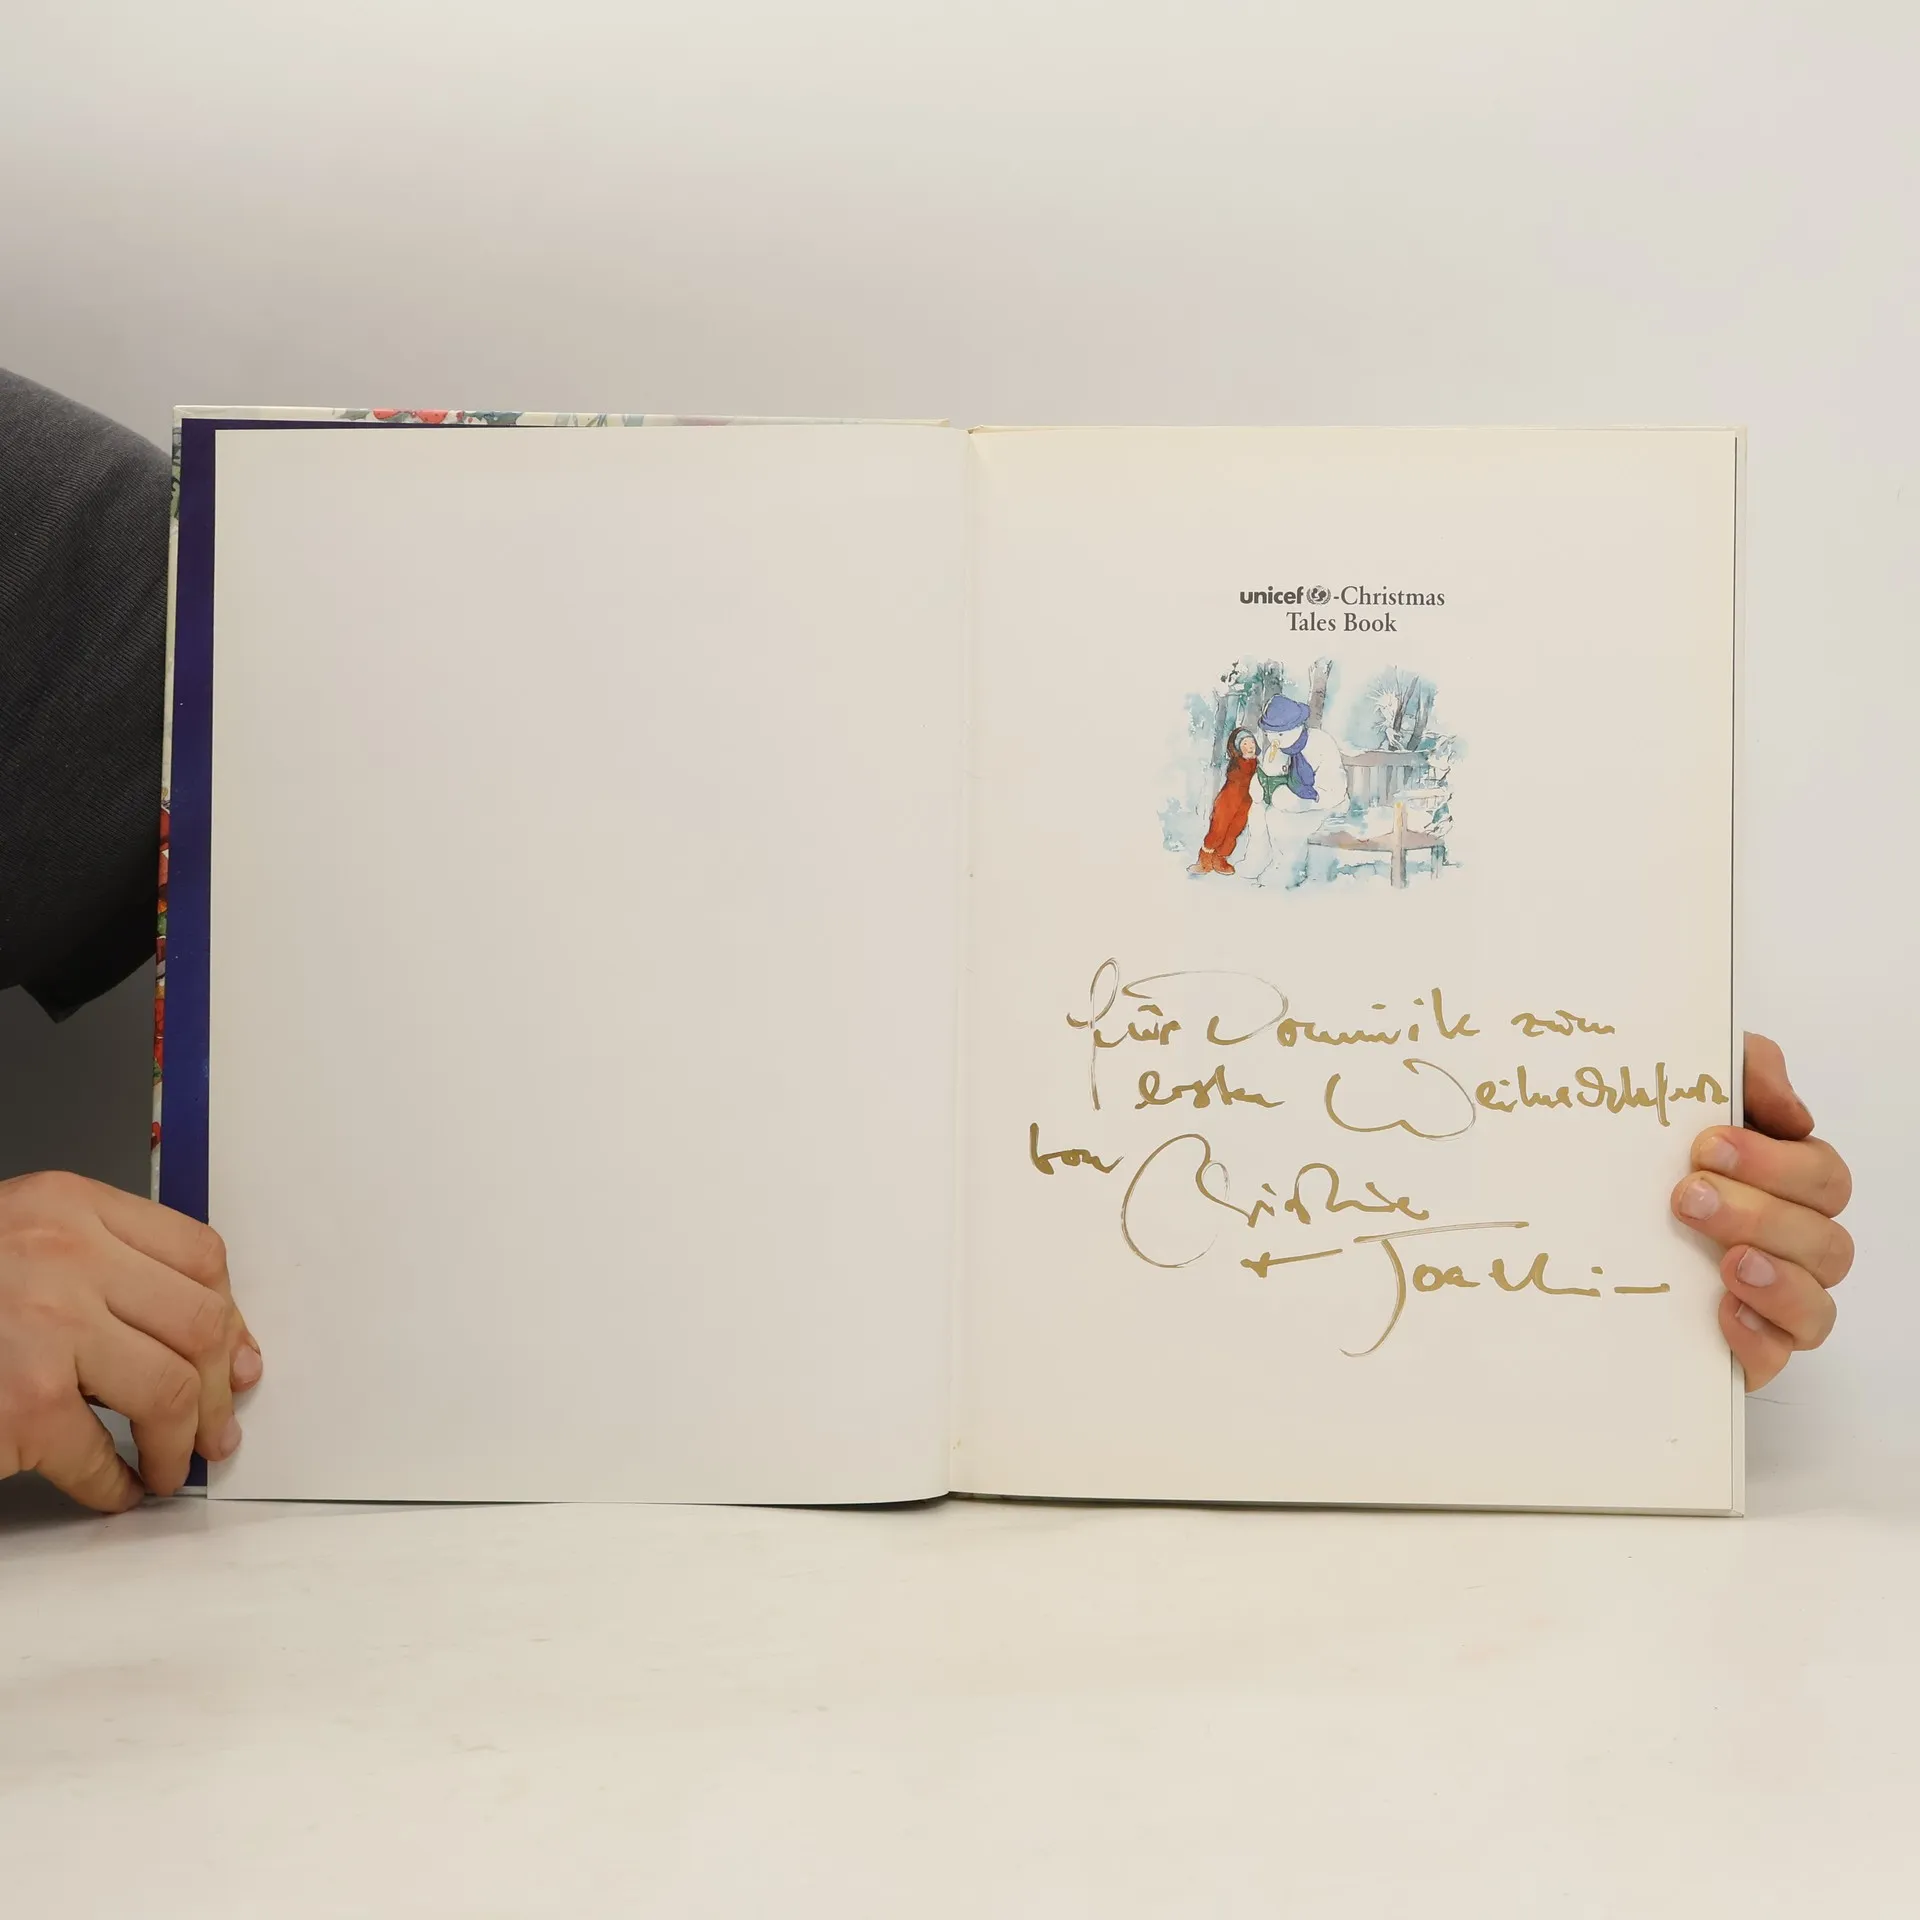 unicef-Christmas
Tales Book
für Dominik zum
ersten Weihnachtsfest
von Christine
+ Joachim